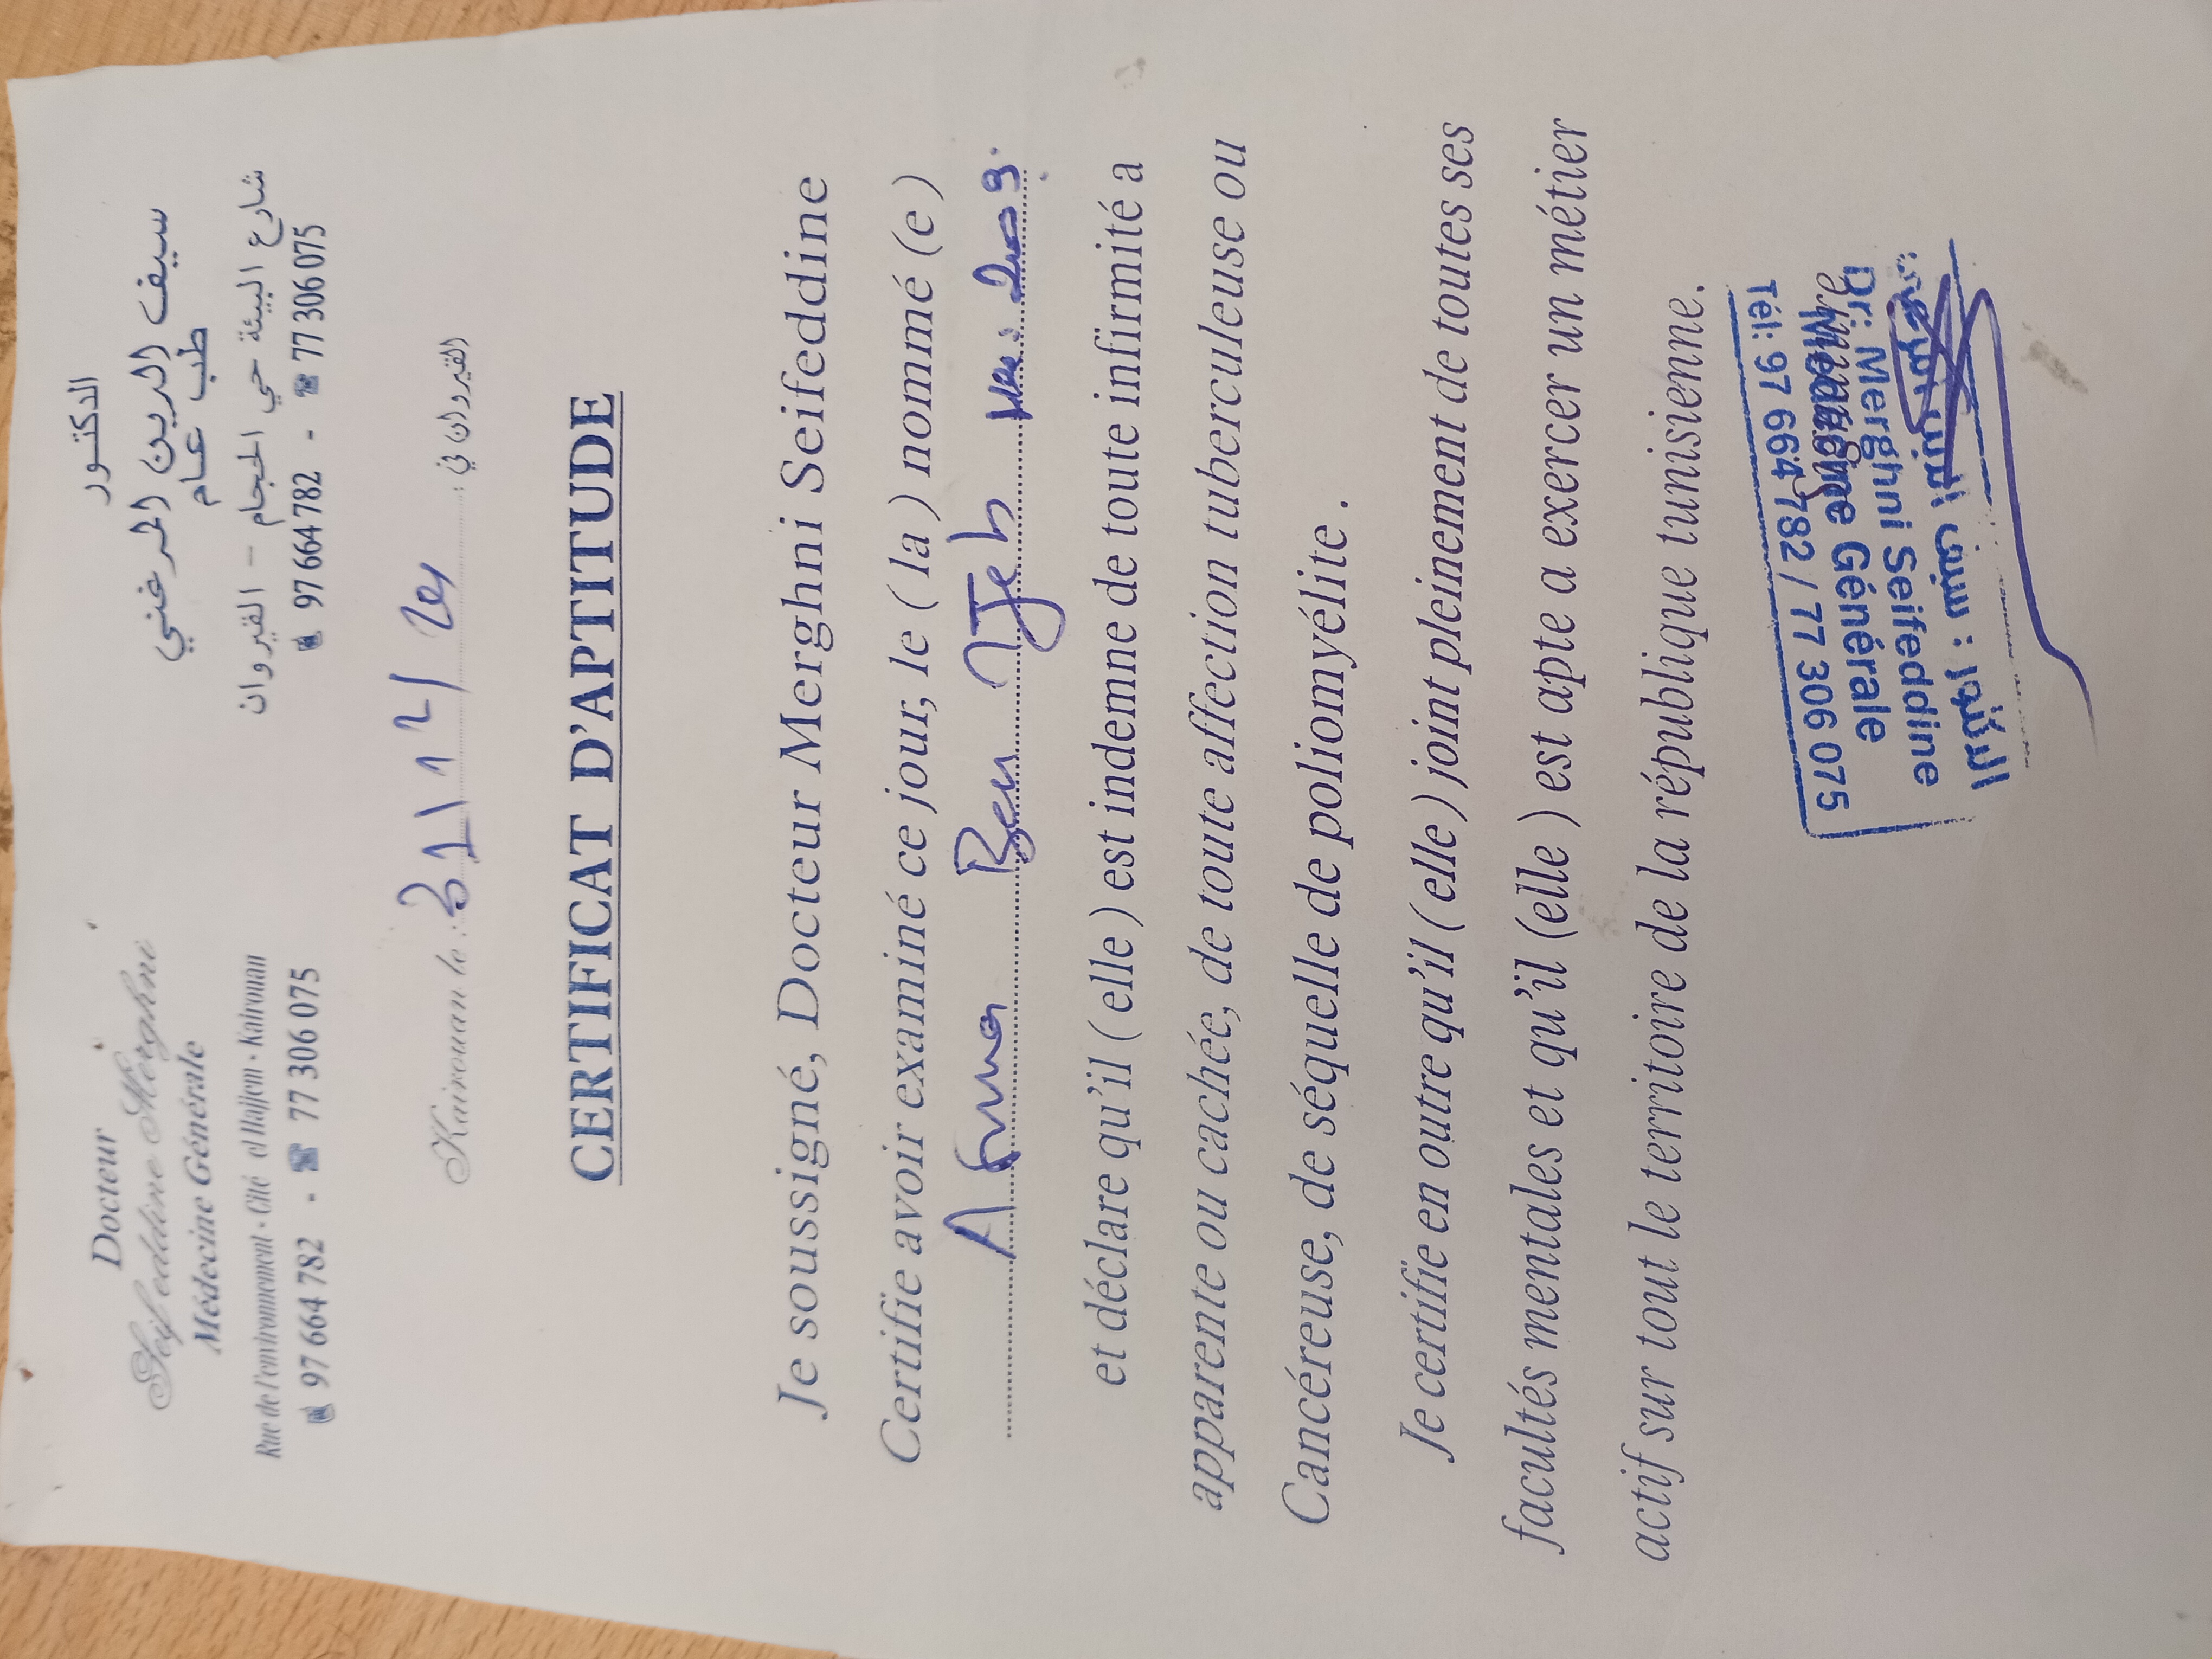 Docteur
Seifeddine Merghni
Médecine Générale
Rue de l'environnement - Cité el Hajjem - Kairouan
97 664 782 - 77 306 075
الدكتور
سيف الدين المرغني
طب عام
شارع البيئة حي الحجام - القيروان
97 664 782 - 77 306 075
Kairouan le : 31 12/ القيروان في :
CERTIFICAT D'APTITUDE
Je soussigné, Docteur Merghni Seifeddine
Certifie avoir examiné ce jour, le ( la ) nommé (e)
Ben 2009.
et déclare qu'il ( elle ) est indemne de toute infirmité a
apparente ou cachée, de toute affection tuberculeuse ou
Cancéreuse, de séquelle de poliomyélite .
Je certifie en outre qu'il ( elle ) joint pleinement de toutes ses
facultés mentales et qu'il (elle ) est apte a exercer un métier
actif sur tout le territoire de la république tunisienne.
Tél: 97 664 782 / 77 306 075
Médecine Générale
Dr: Merghni Seifeddine
الدكتور : سيف الدين المرغني